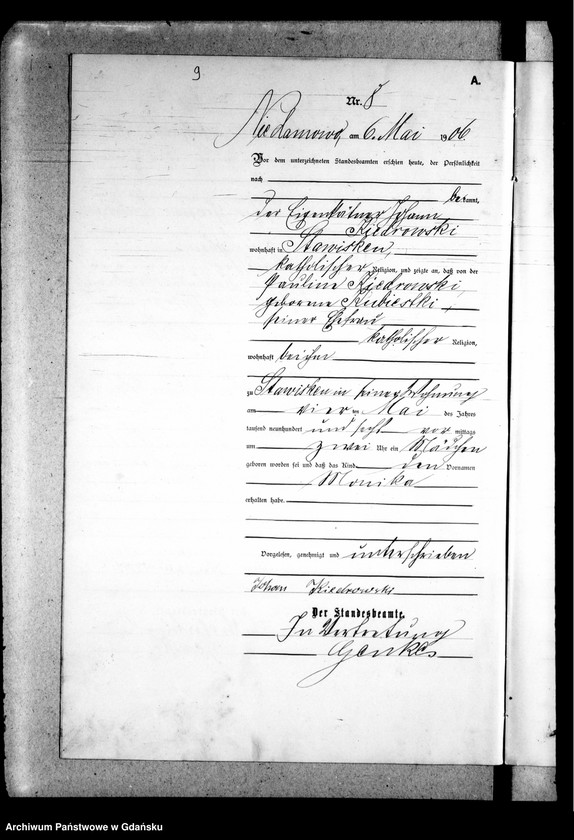 9
A.
Nr. 8
Niedamowo, am 6. Mai 1906
Vor dem unterzeichneten Standesbeamten erschien heute, der Persönlichkeit
nach
bekannt,
der Eigenkätner Johann
Kiedrowski
wohnhaft in Stawisken,
katholischer Religion, und zeigte an, daß von der
Pauline Kiedrowski,
geborene
seiner Ehefrau
katholischer Religion,
wohnhaft bei ihm
zu Stawisken in seiner Wohnung
am vier ten Mai des Jahres
tausend neunhundert und sechs vor mittags
um zwei Uhr ein Mädchen
geboren worden sei und daß das Kind den Vornamen
Monika
erhalten habe.
Vorgelesen, genehmigt und unterschrieben
Johann Kiedrowski
Der Standesbeamte.
In Vertretung
Archiwum Państwowe w Gdańsku